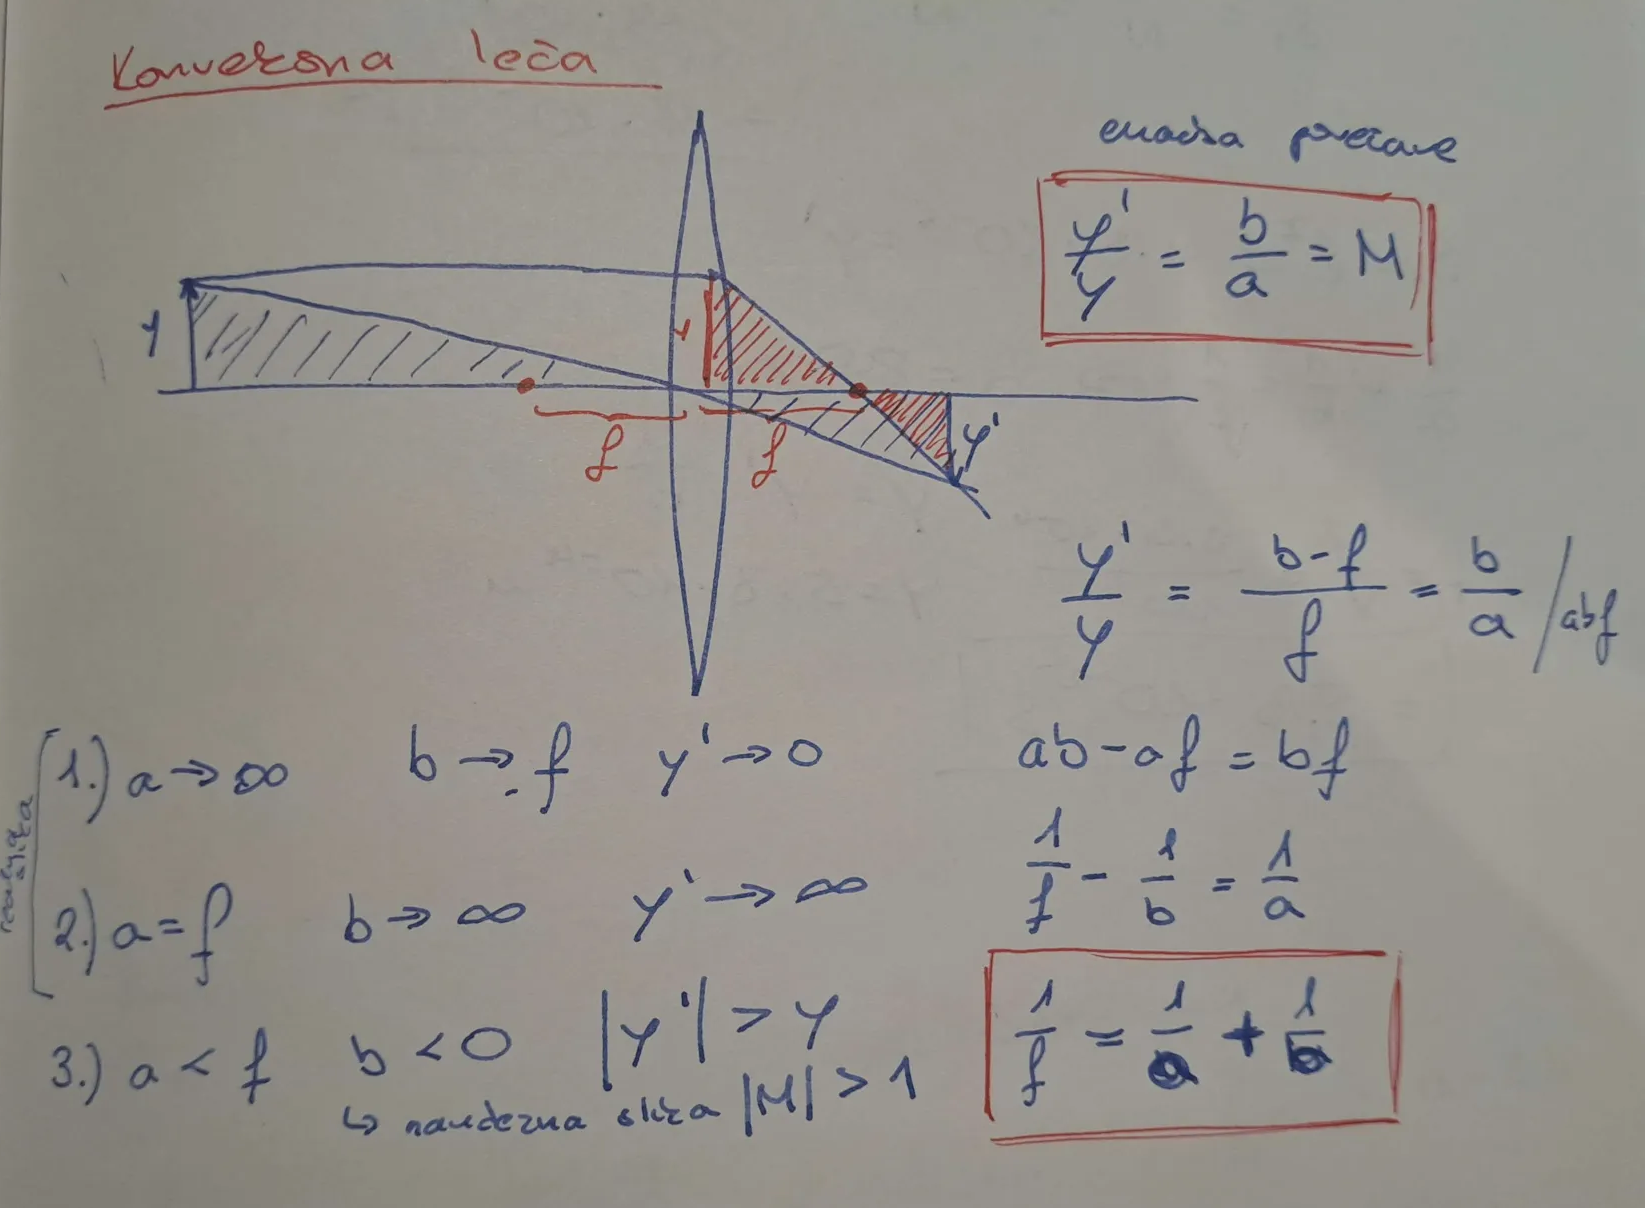 Konveksna leča
enačba povečave
y'/y = b/a = M
y
y
f
f
y'
y'/y = (b-f)/f = b/a /abf
ab-af = bf
1/f - 1/b = 1/a
1/f = 1/a + 1/b
realna slika
1.) a → ∞ b → f y' → 0
2.) a = f b → ∞ y' → ∞
3.) a < f b < 0 |y'| > y
↳ navidezna slika |M| > 1